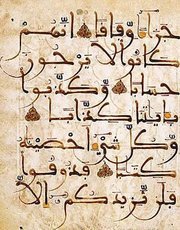 جزآءً وفاقًا إنهم
كانوا لا يرجون
حسابًا وكذبوا
بايتنا كذابًا
وكل شيء أحصينه
كتبًا فذوقوا
فلن نزيدكم إلا